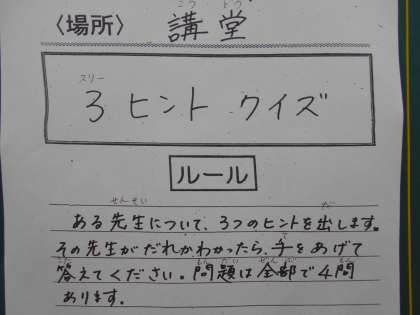 〈場所〉 講堂
3 ヒント クイズ
ルール
ある先生について、3つのヒントを出します。
その先生がだれかわかったら、手をあげて
答えてください。問題は全部で4問
あります。